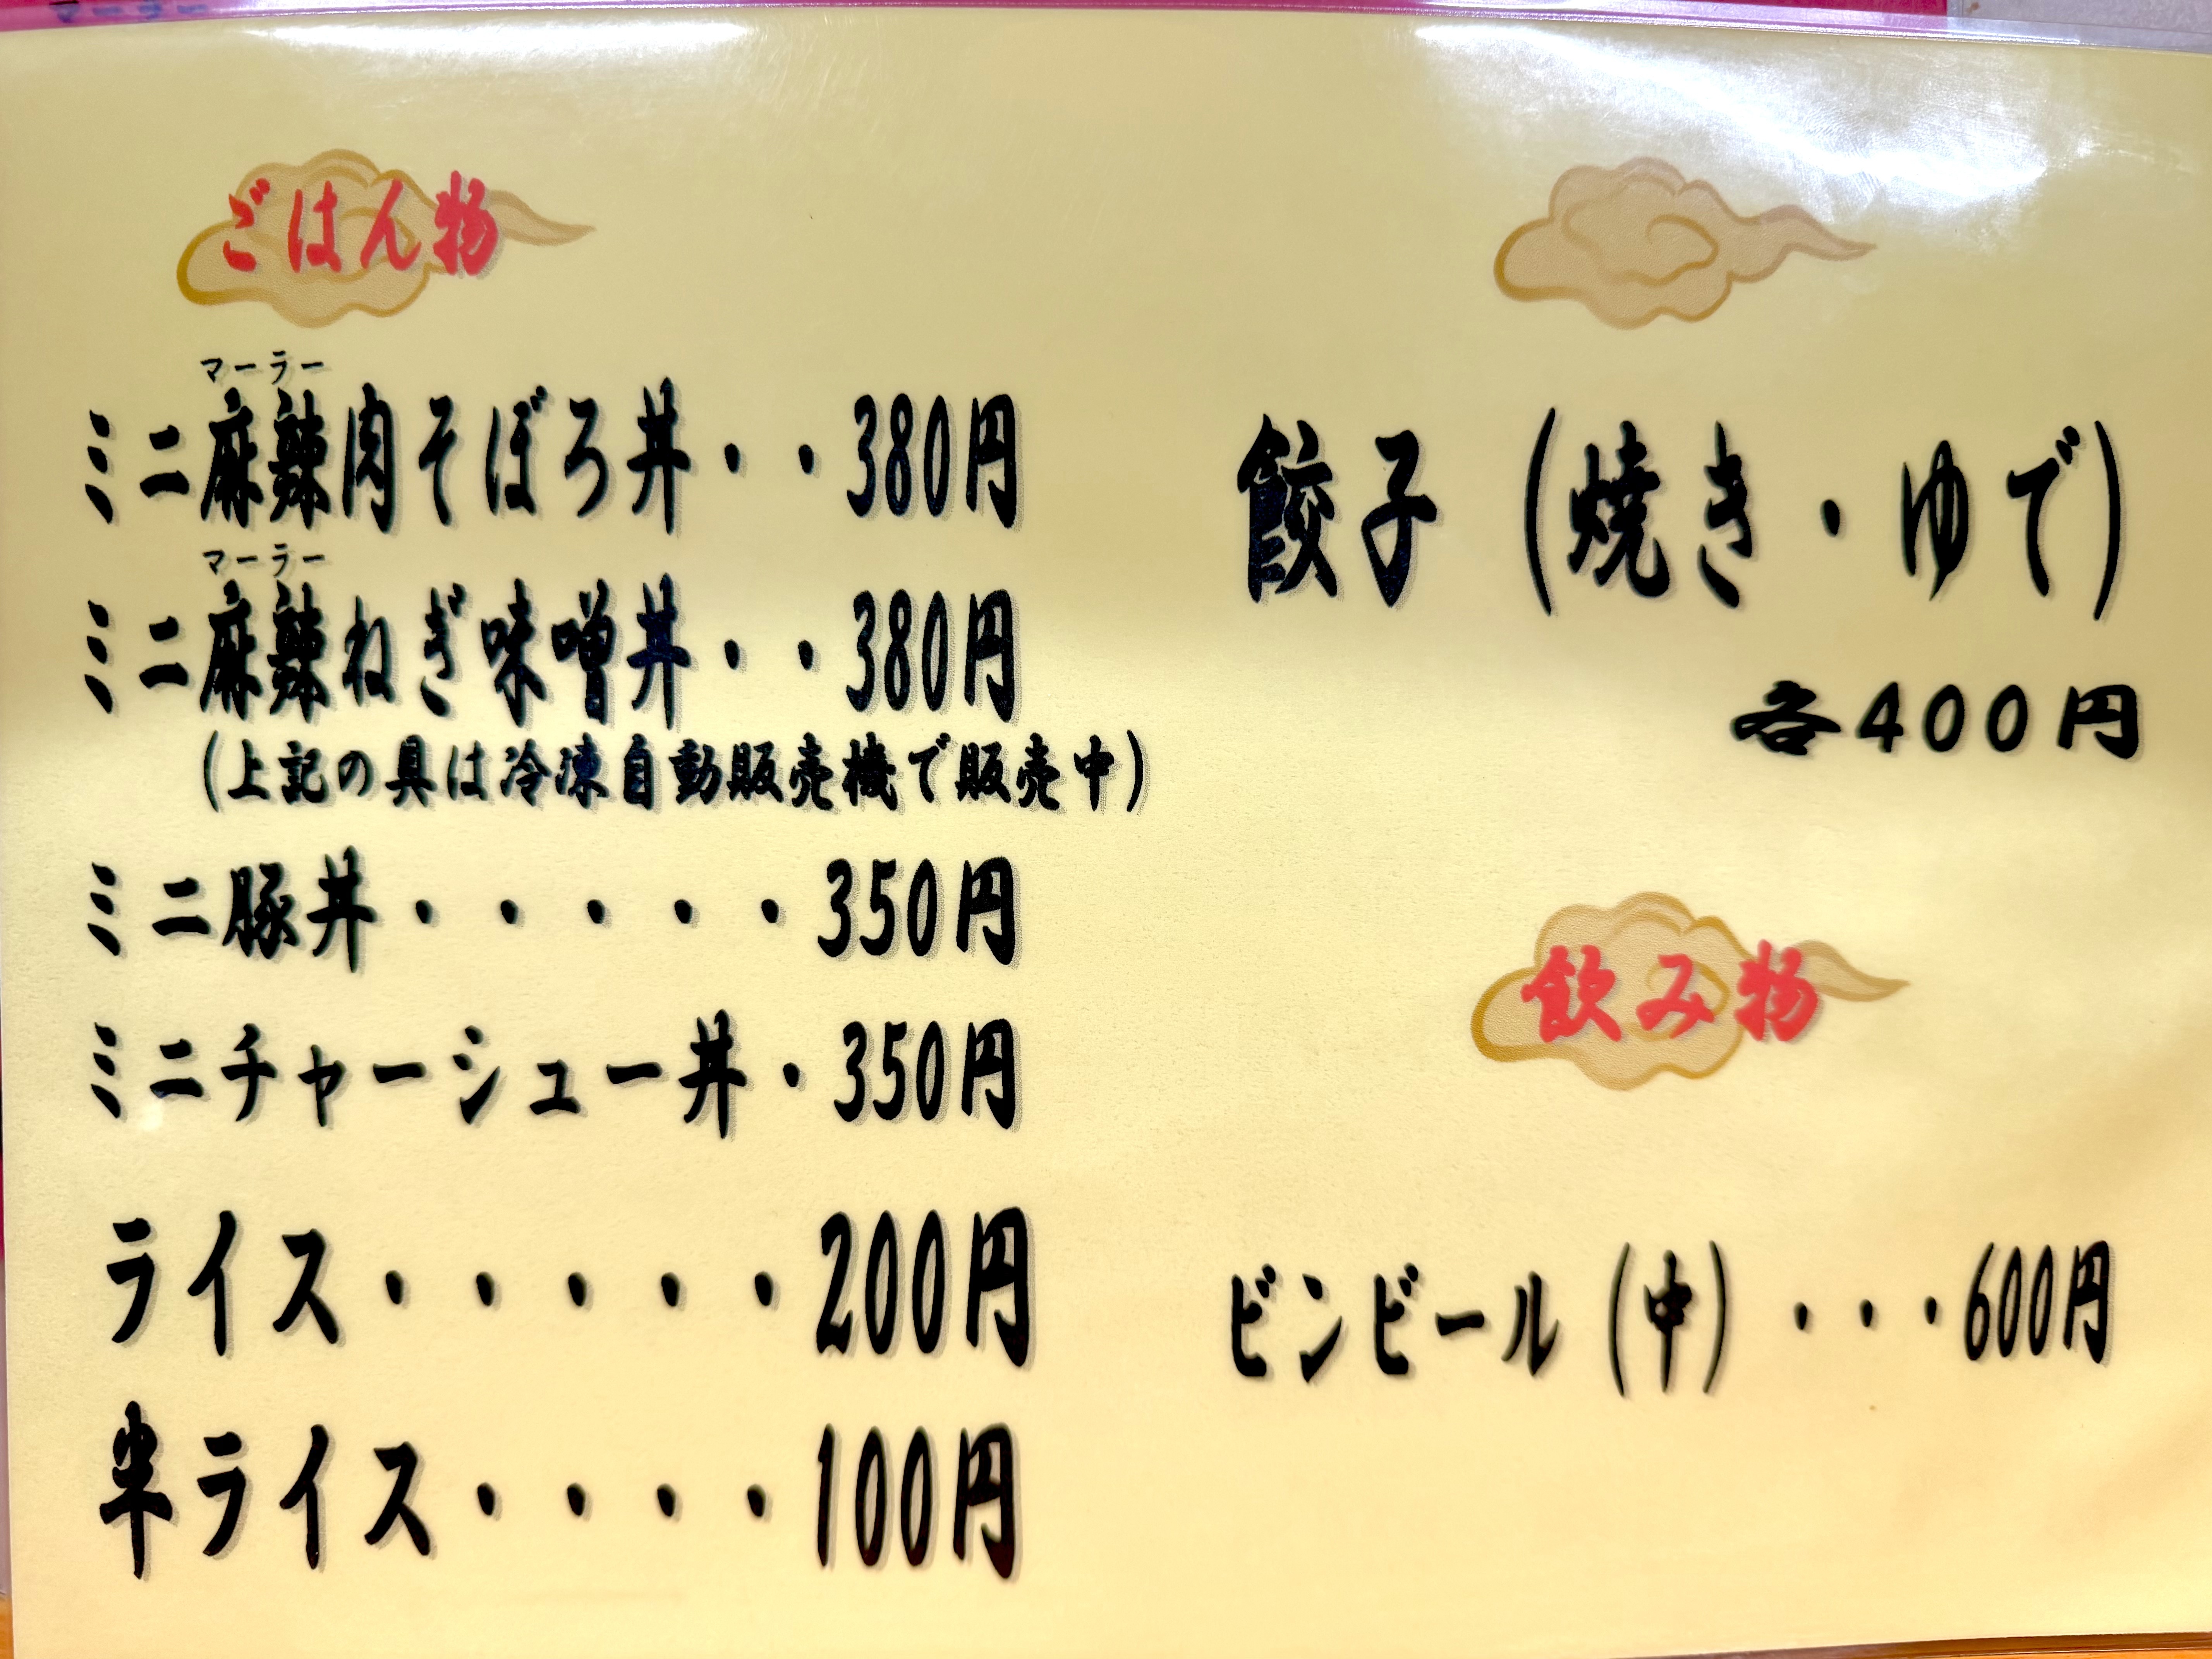 ごはん物
マーラー
ミニ麻辣肉そぼろ丼・・380円
マーラー
ミニ麻辣ねぎ味噌丼・・380円
(上記の具は冷凍自動販売機で販売中)
ミニ豚丼・・・・・350円
ミニチャーシュー丼・350円
ライス・・・・・200円
半ライス・・・・100円
餃子(焼き・ゆで)
各400円
飲み物
ビンビール(中)・・・600円